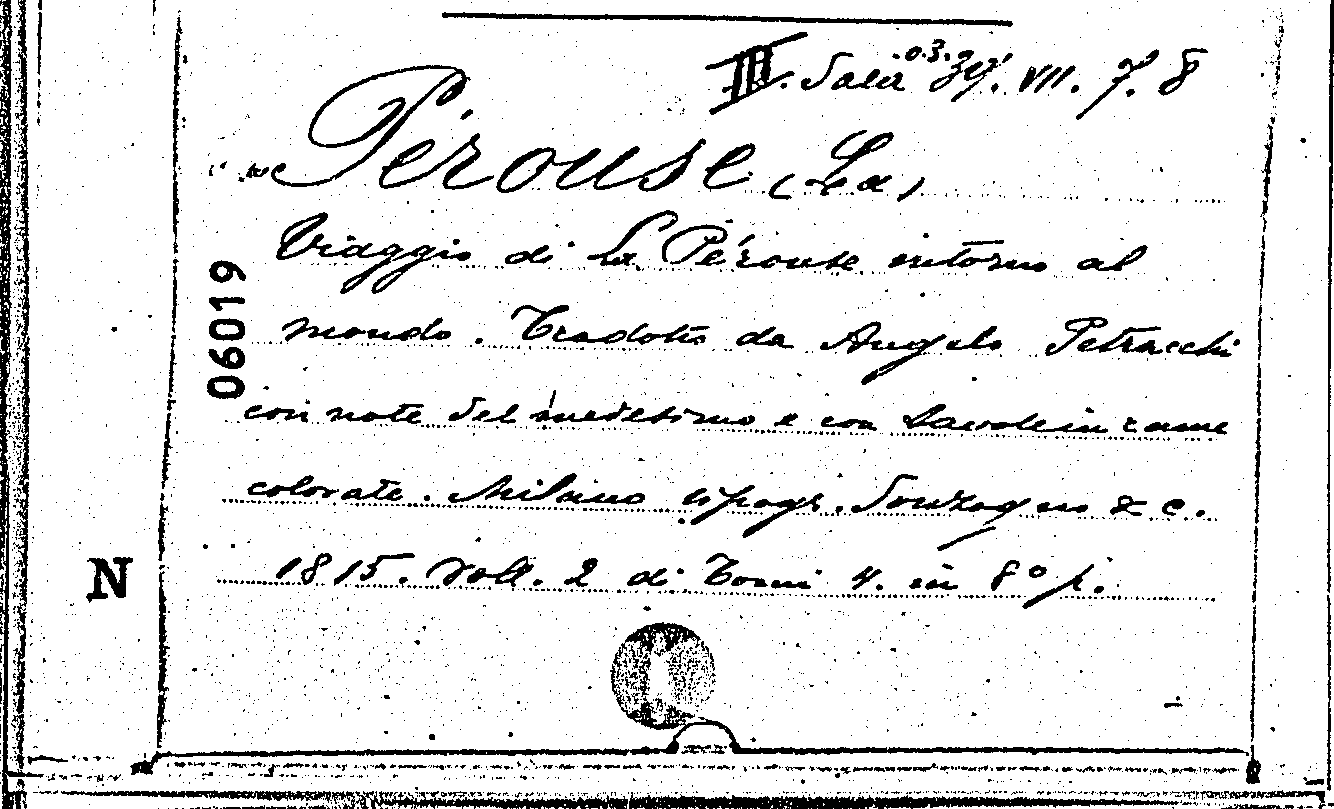 III. Sala VII. 7. 8
Pérouse (La)
Viaggio di La Pérouse intorno al
mondo. Tradotto da Angelo Petracchi
con note del medesimo e con tavole in rame
colorate. Milano tipogr. Sonzogno & c.
1815. Voll. 2 di Tomi 4. in 8° p.
06019
N